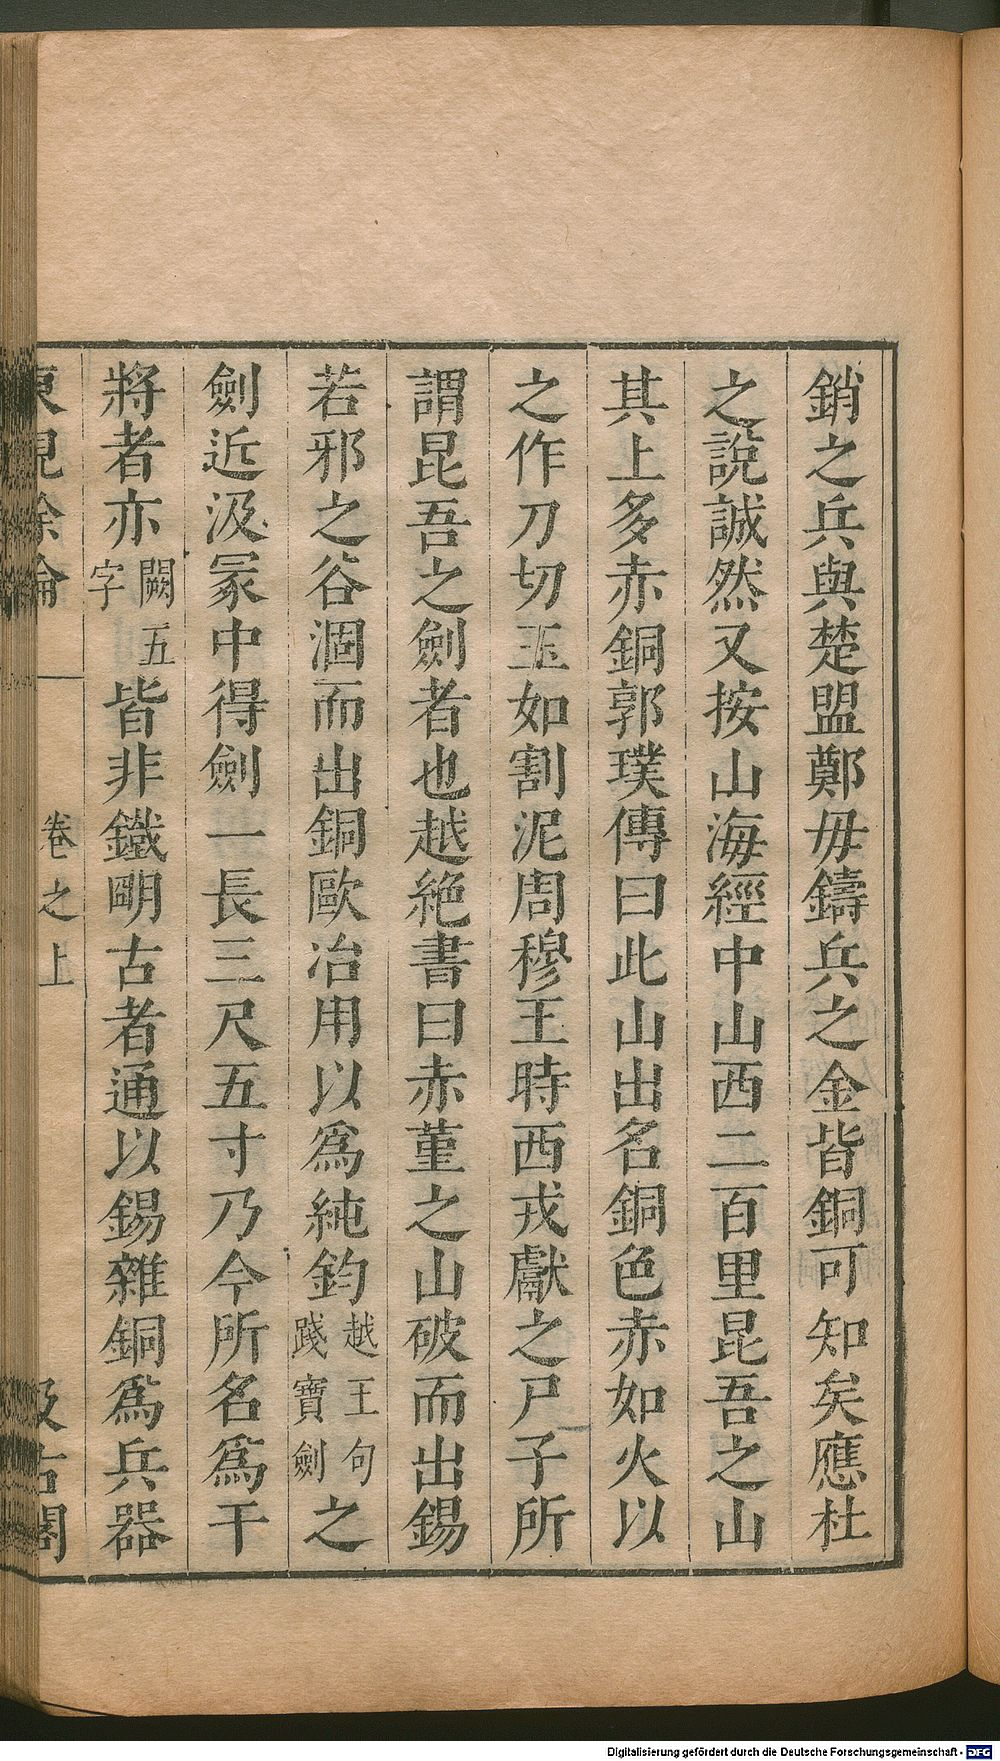 銷之兵與楚盟鄭毋鑄兵之金皆銅可知矣應杜
之說誠然又按山海經中山西二百里昆吾之山
其上多赤銅郭璞傳曰此山出名銅色赤如火以
之作刀切玉如割泥周穆王時西戎獻之尸子所
謂昆吾之劍者也越絶書曰赤菫之山破而出錫
若邪之谷涸而出銅歐冶用以爲純鈞越王句踐寶劍之
劍近汲冢中得劍一長三尺五寸乃今所名爲干
將者亦闕五字皆非鐵朙古者通以錫雜銅爲兵器
東觀餘論 卷之上 汲古閣
Digitalisierung gefördert durch die Deutsche Forschungsgemeinschaft - DFG